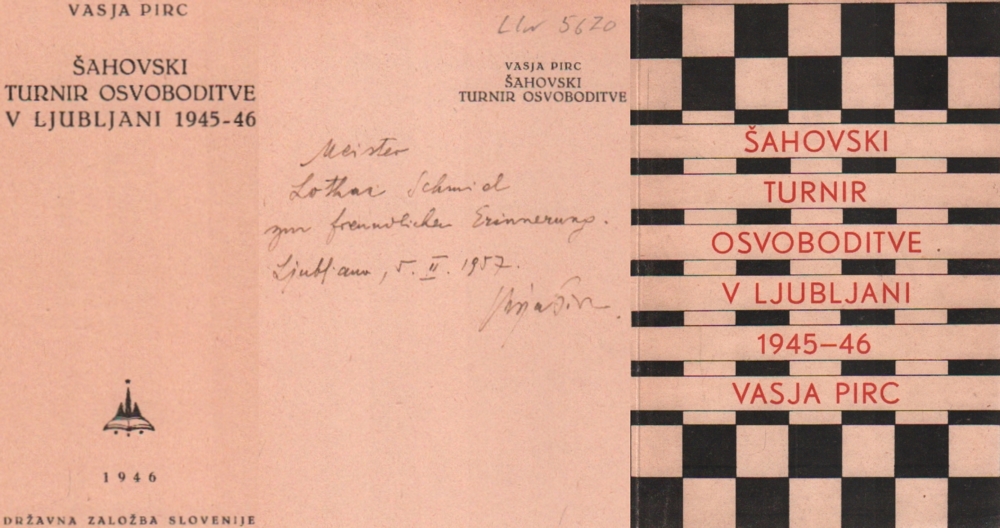 VASJA PIRC
ŠAHOVSKI
TURNIR OSVOBODITVE
V LJUBLJANI 1945-46
1946
DRŽAVNA ZALOŽBA SLOVENIJE
5620
VASJA PIRC
ŠAHOVSKI
TURNIR OSVOBODITVE
Meister
Lothar Schmid
zur freundlichen Erinnerung.
Ljubljana, 5. II. 1957.
Vasja Pirc
ŠAHOVSKI
TURNIR
OSVOBODITVE
V LJUBLJANI
1945–46
VASJA PIRC